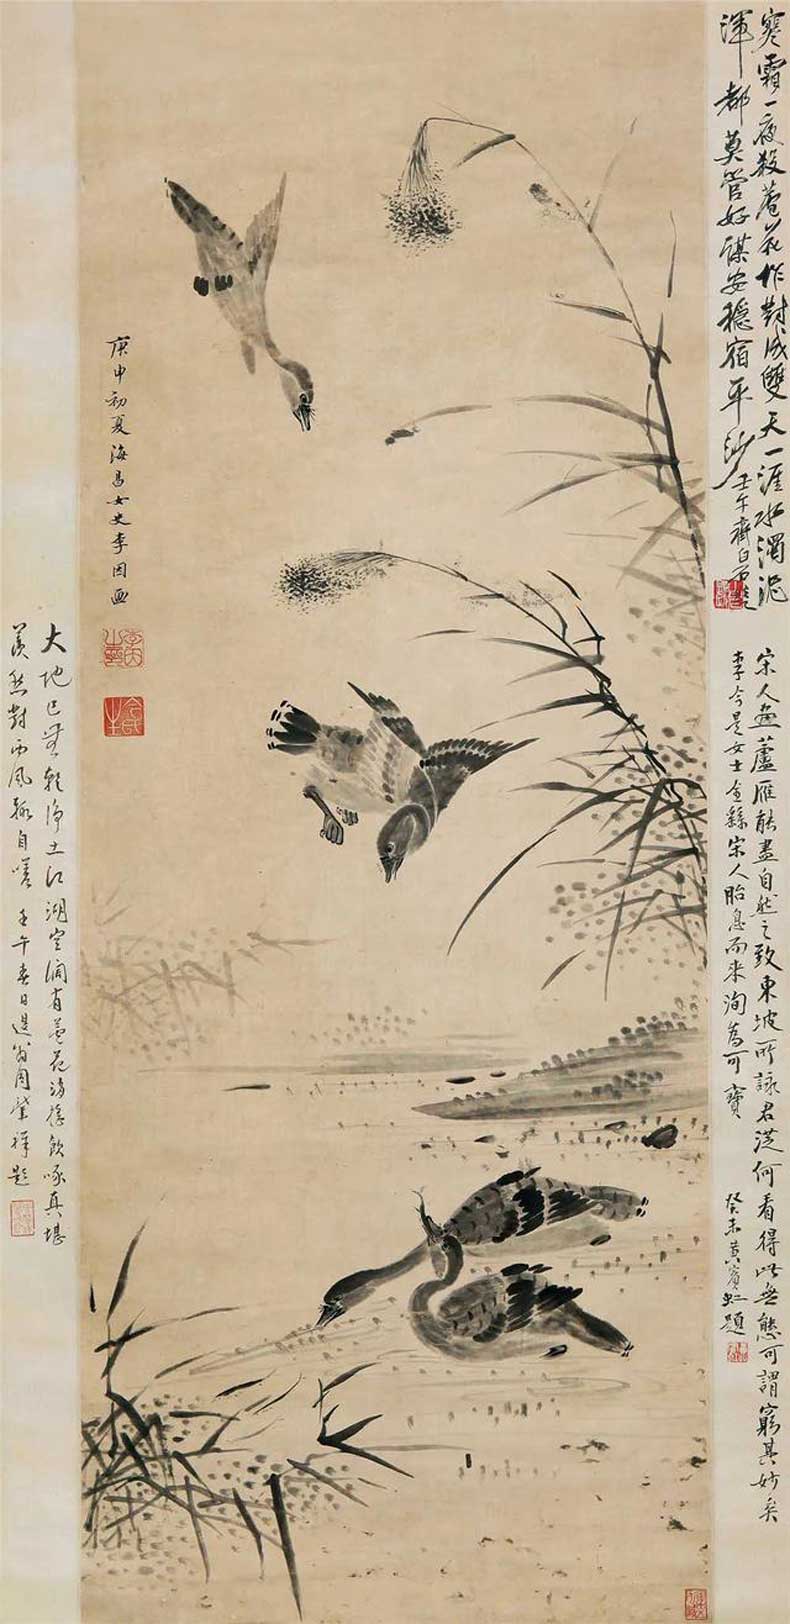 寒霜一夜殺蘆花作對成雙天一涯水濁泥
渾都莫管好謀安穩宿平沙
壬午齊白石題
宋人畫蘆雁能盡自然之致東坡所詠君從何看得此無態可謂窮其妙矣
李今是女士全繇宋人胎息而來洵為可寶
癸未黃賓虹題
庚申初夏海昌女史李因画
李因之印
大地已無乾淨土江湖空闊有蘆花飲啄真堪
羨對西風輒自嗟 壬午春日退翁周肇祥題